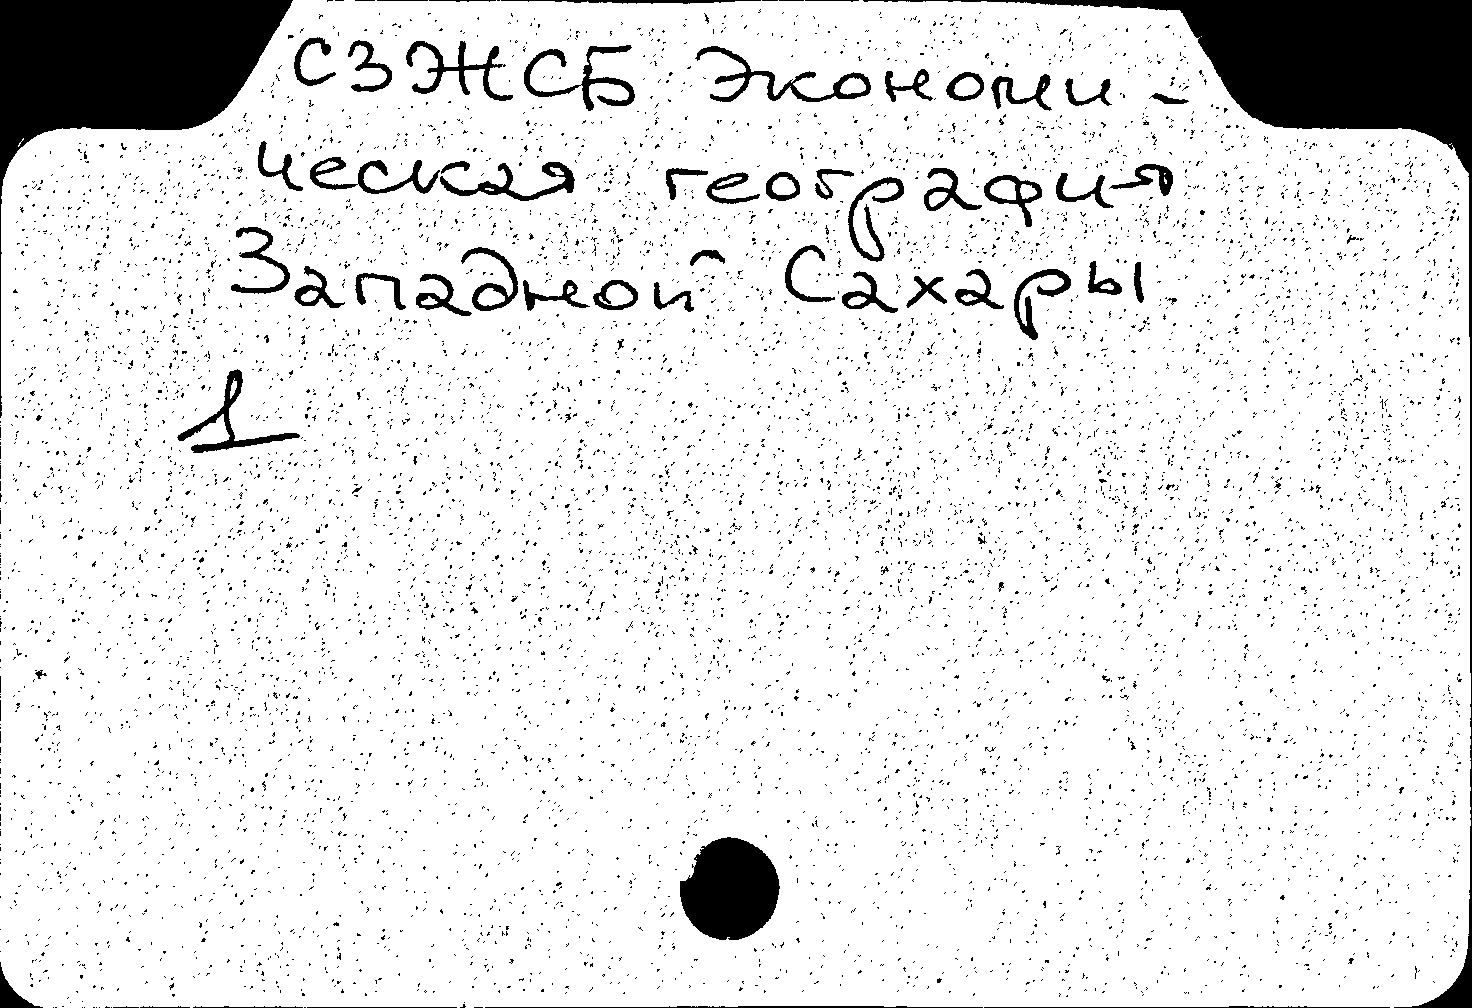 СЗЭЖСБ Экономи-
ческая география
Западной Сахары
1